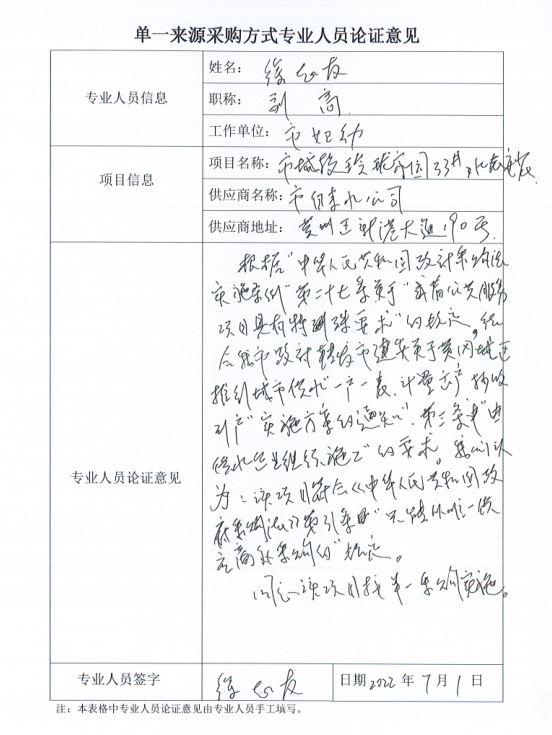 单一来源采购方式专业人员论证意见
专业人员信息
姓名：徐志友
职称：副高
工作单位：市妇幼
项目信息
项目名称：市城投
供应商名称：市自来水公司
供应商地址：黄州区新港大道190号
专业人员论证意见
根据"中华人民共和国政府采购法
实施条例"第二十七条关于"或者公共服务
项目具有特殊要求"的规定。结
合我市政府转发市建委关于黄冈城区
推行城市供水"一户一表、计量出户、抄收
到户"实施方案的通知"，第三条"由
供水企业组织施工"的要求。我们认
为：该项目符合《中华人民共和国政
府采购法》第31条"只能从唯一供
应商处采购的"规定。
同意该项目按单一采购实施。
专业人员签字
徐志友
日期 2022 年 7 月 1 日
注：本表格中专业人员论证意见由专业人员手工填写。